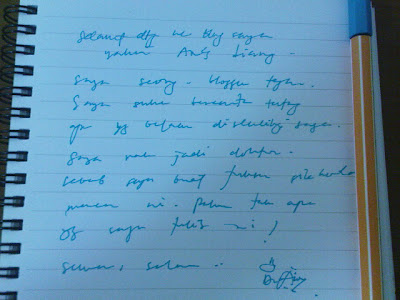 Selamat dtg ke blog saya
yakni
Saya seorg blogger
Saya suka bercerita ttg
apa yg berlaku di sekeliling saya.
Saya nak jadi doktor.
sebab saya buat tulisan
macam ni. Paham tak apa
yg saya tulis ni!
sekian, salam..